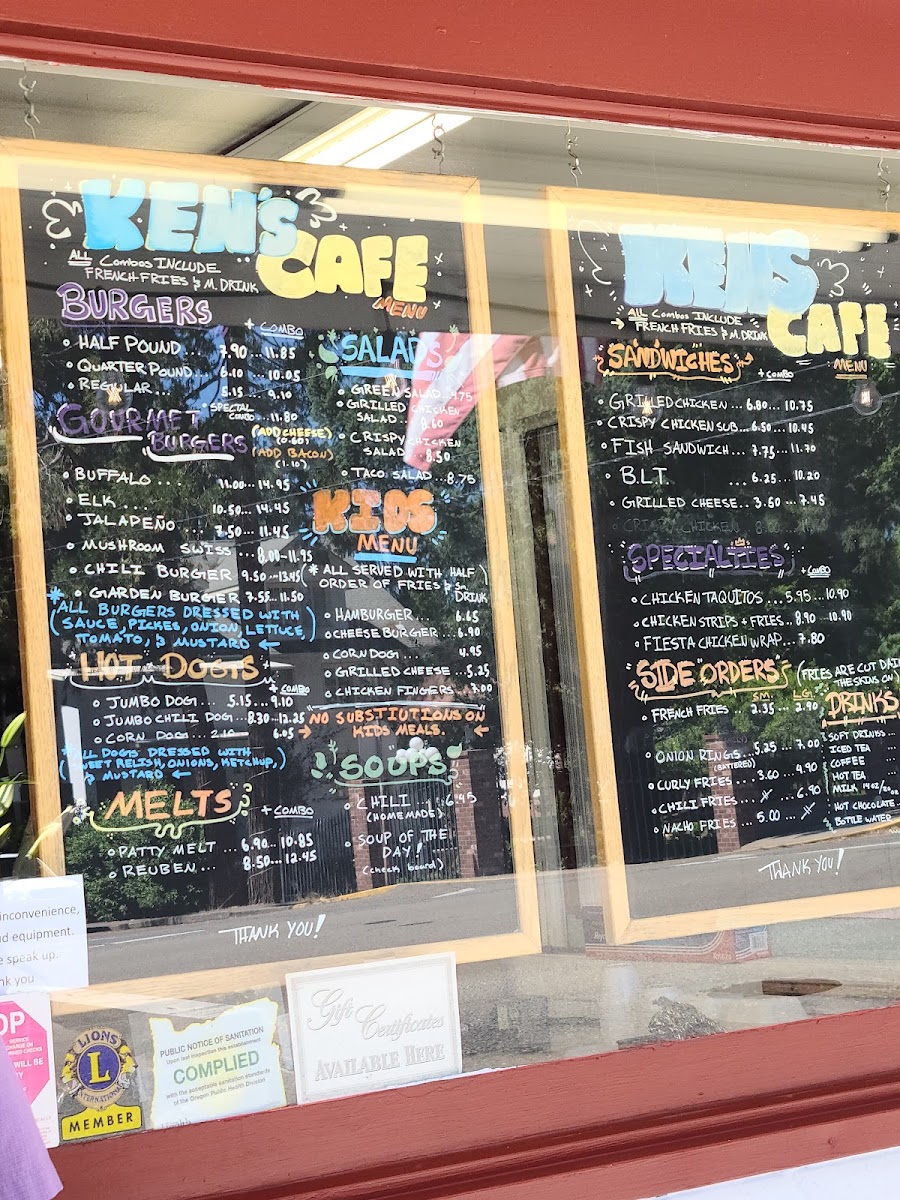 KEN'S
CAFE
MENU
ALL Combos INCLUDE
FRENCH-FRIES & M. DRINK
BURGERS
+ COMBO
HALF POUND 7.90 ... 11.85
QUARTER POUND ... 6.10 10.05
REGULAR ... 5.15 ... 9.10
GOURMET
BURGERS
SPECIAL COMBO ... 11.80
(ADD CHEESE)
(0.60)
(ADD BACON)
(1.10)
BUFFALO ... 11.00 ... 14.95
ELK ... 10.50 ... 14.45
JALAPEÑO 7.50 ... 11.45
MUSHROOM SWISS ... 8.00-11.95
CHILI BURGER 9.50 ...13.45
* GARDEN BURGER 7.55 ... 11.50
(ALL BURGERS DRESSED WITH
SAUCE, PICKES, ONION, LETTUCE,
TOMATO, & MUSTARD ←)
HOT DOGTS
+ COMBO
JUMBO DOG ... 5.15 ... 9.10
JUMBO CHILI DOG ... 8.30 ...12.25
CORN DOG ... 2.10 6.05
* (ALL DOGS DRESSED WITH
SWEET RELISH, ONIONS, KETCHUP,
& MUSTARD ←)
MELTS
+ COMBO
PATTY MELT ... 6.90... 10.85
REUBEN ... 8.50 ... 12.45
SALADS
GREEN SALAD ...4.75
GRILLED CHICKEN
SALAD ... 8.60
CRISPY CHICKEN
SALAD 8.50
TACO SALAD ...8.75
KIDS
MENU
(* ALL SERVED WITH HALF
ORDER OF FRIES & S. DRINK)
HAMBURGER ... 6.65
CHEESE BURGER ... 6.90
CORN DOG ... 4.95
GRILLED CHEESE ... 5.25
CHICKEN FINGERS ... 7.00
NO SUBSTIUTIONS ON
→ KIDS MEALS. ←
SOUPS
CHILI 6.45
(HOMEMADE)
SOUP OF THE
DAY!
(check board)
THANK YOU!
KENS
CAFE
MENU
ALL Combos INCLUDE
→ FRENCH FRIES & M. DRINK
SANDWICHES
+ COMBO
GRILLED CHICKEN ... 6.80 ... 10.75
CRISPY CHICKEN SUB ... 6.50 ... 10.45
FISH SANDWICH ... 7.75 ... 11.70
B.L.T. ... 6.25 ... 10.20
GRILLED CHEESE ... 3.60 ... 7.45
CRISPY CHICKEN
SPECIALTIES
+ COMBO
CHICKEN TAQUITOS ... 5.95 ... 10.90
CHICKEN STRIPS + FRIES ... 8.90 ... 10.90
FIESTA CHICKEN WRAP ... 7.80
SIDE ORDERS
(FRIES ARE CUT
THE SKINS ON)
SM. LG.
FRENCH FRIES ... 2.35 ... 2.90
ONION RINGS ... 5.25 ... 7.00
(BATTERED)
CURLY FRIES ... 3.60 ... 4.90
CHILI FRIES ... X ... 6.90
NACHO FRIES ... 5.00 ... X
DRINKS
SOFT DRINKS ...
ICED TEA
COFFEE
HOT TEA
MILK 14 oz/20 oz
HOT CHOCOLATE
BOTTLE WATER
THANK YOU!
inconvenience,
equipment.
speak up.
you
Lions
L
INTERNATIONAL
MEMBER
PUBLIC NOTICE OF SANITATION
Upon last inspection this establishment
COMPLIED
with the acceptable sanitation standards
of the Oregon Public Health Division
Gift
Certificates
AVAILABLE HERE